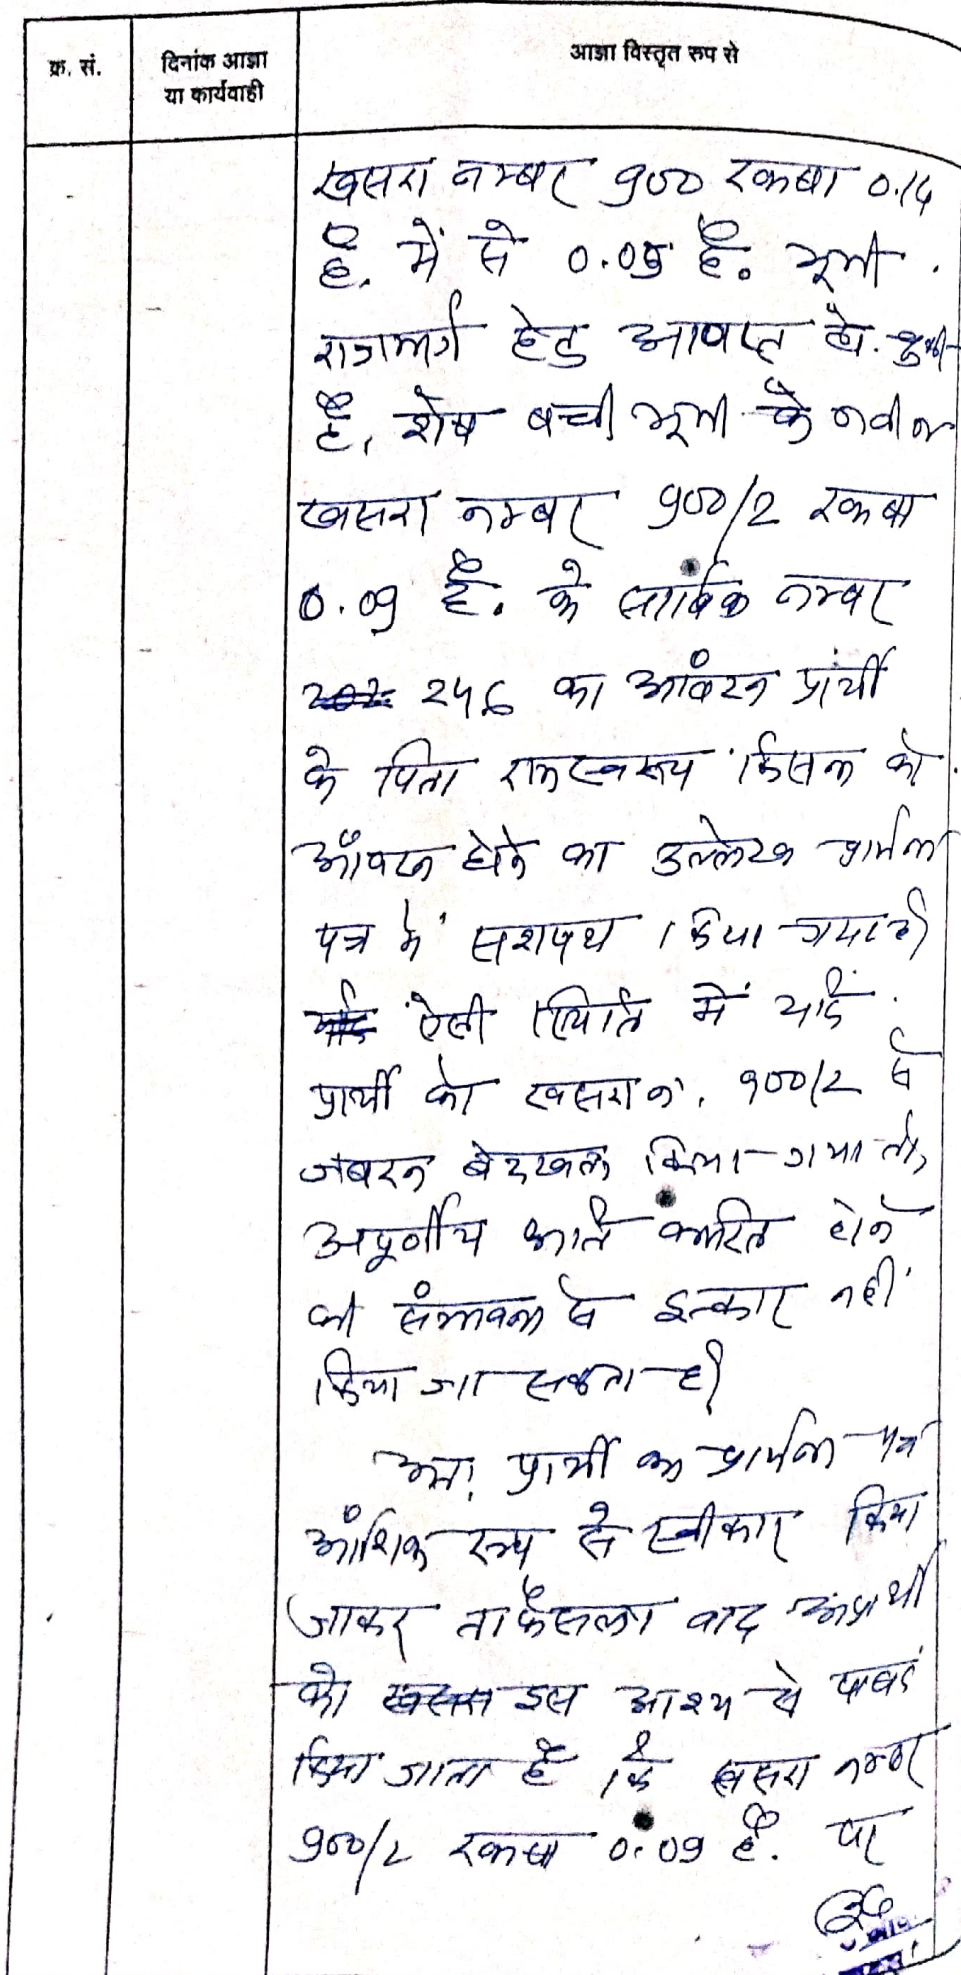 क्र. सं. दिनांक आज्ञा या कार्यवाही आज्ञा विस्तृत रूप से
खसरा नम्बर 900 रकबा 0.14
है. में से 0.05 है. भूमी
राजमार्ग हेतु आवाप्त हो चुकी
है, शेष बची भूमी के नवीन
खसरा नम्बर 900/2 रकबा
0.09 है. के साबिक नम्बर
246 का आंवटन प्रार्थी
के पिता रामस्वरूप किसन को
आँवटन होने का उल्लेख प्रार्थना
पत्र में सशपथ किया गया है।
ऐसी स्थिति में यदि
प्रार्थी को खसरा न. 900/2 से
जबरन बेदखल किया गया तो,
अपूर्णीय क्षति कारित होने
की संभावना से इन्कार नहीं
किया जा सकता है।
अतः प्रार्थी का प्रार्थना पत्र
आंशिक रूप से स्वीकार किया
जाकर ताफैसला वाद अप्रार्थी
को इस आशय से पाबंद
किया जाता है कि खसरा नम्बर
900/2 रकबा 0.09 है. पर